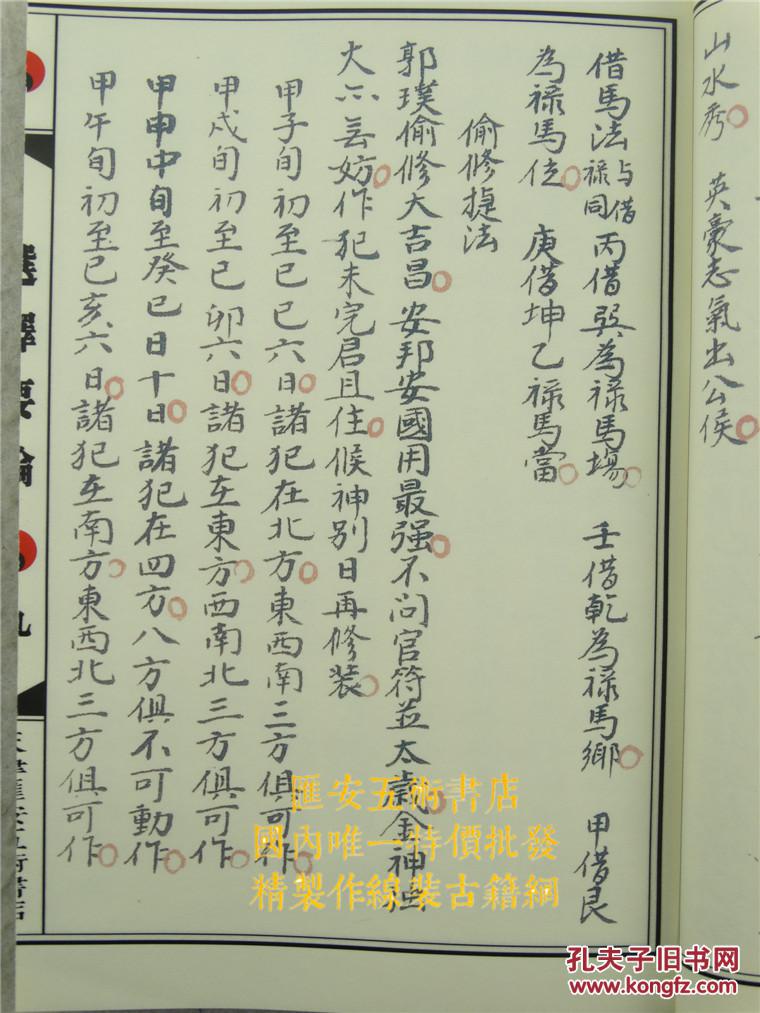 山水秀　英豪志氣出公侯
借馬法與借祿同丙借巽為祿馬場　壬借乾為祿馬鄉　甲借艮
為祿馬位　庚借坤乙祿馬當
偷修捷法
郭璞偷修大吉昌　安邦安國用最强不问官符並太歲金神
火亦無妨作犯未完君且住候神别日再修装
甲子旬初至己巳六日諸犯在北方東西南三方俱可作
甲戌旬初至己卯六日諸犯在東方西南北三方俱可作
甲申中旬至癸巳日十日諸犯在四方八方俱不可動作
甲午旬初至己亥六日諸犯在南方東西北三方俱可作
選擇要論
九
匯安五術書店
國內唯一特價批發
精製作線裝古籍網
孔夫子旧书网
www.kongfz.com